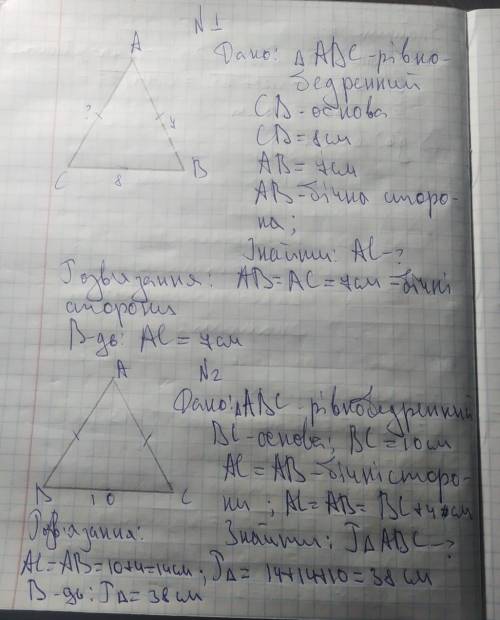 N 1
A
Дано: △ ABC - рівно-
бедренний
CB - основа
CB = 8см
AB = 7см
AB - бічна сторо-
на;
Знайти: AC - ?
? 7
C 8 B
Розвязання: AB = AC = 7см - бічні
сторони
В-дь: AC = 7см
N2
A
Дано: △ABC - рівнобедренний
BC - основа; BC = 10см
AC = AB - бічні сторо-
ни; AC = AB = BC + 4см
Знайти: P△ABC - ?
B 10 C
Розвязання:
AC = AB = 10+4 = 14см; P△ = 14+14+10 = 38 см
В-дь: P△ = 38см